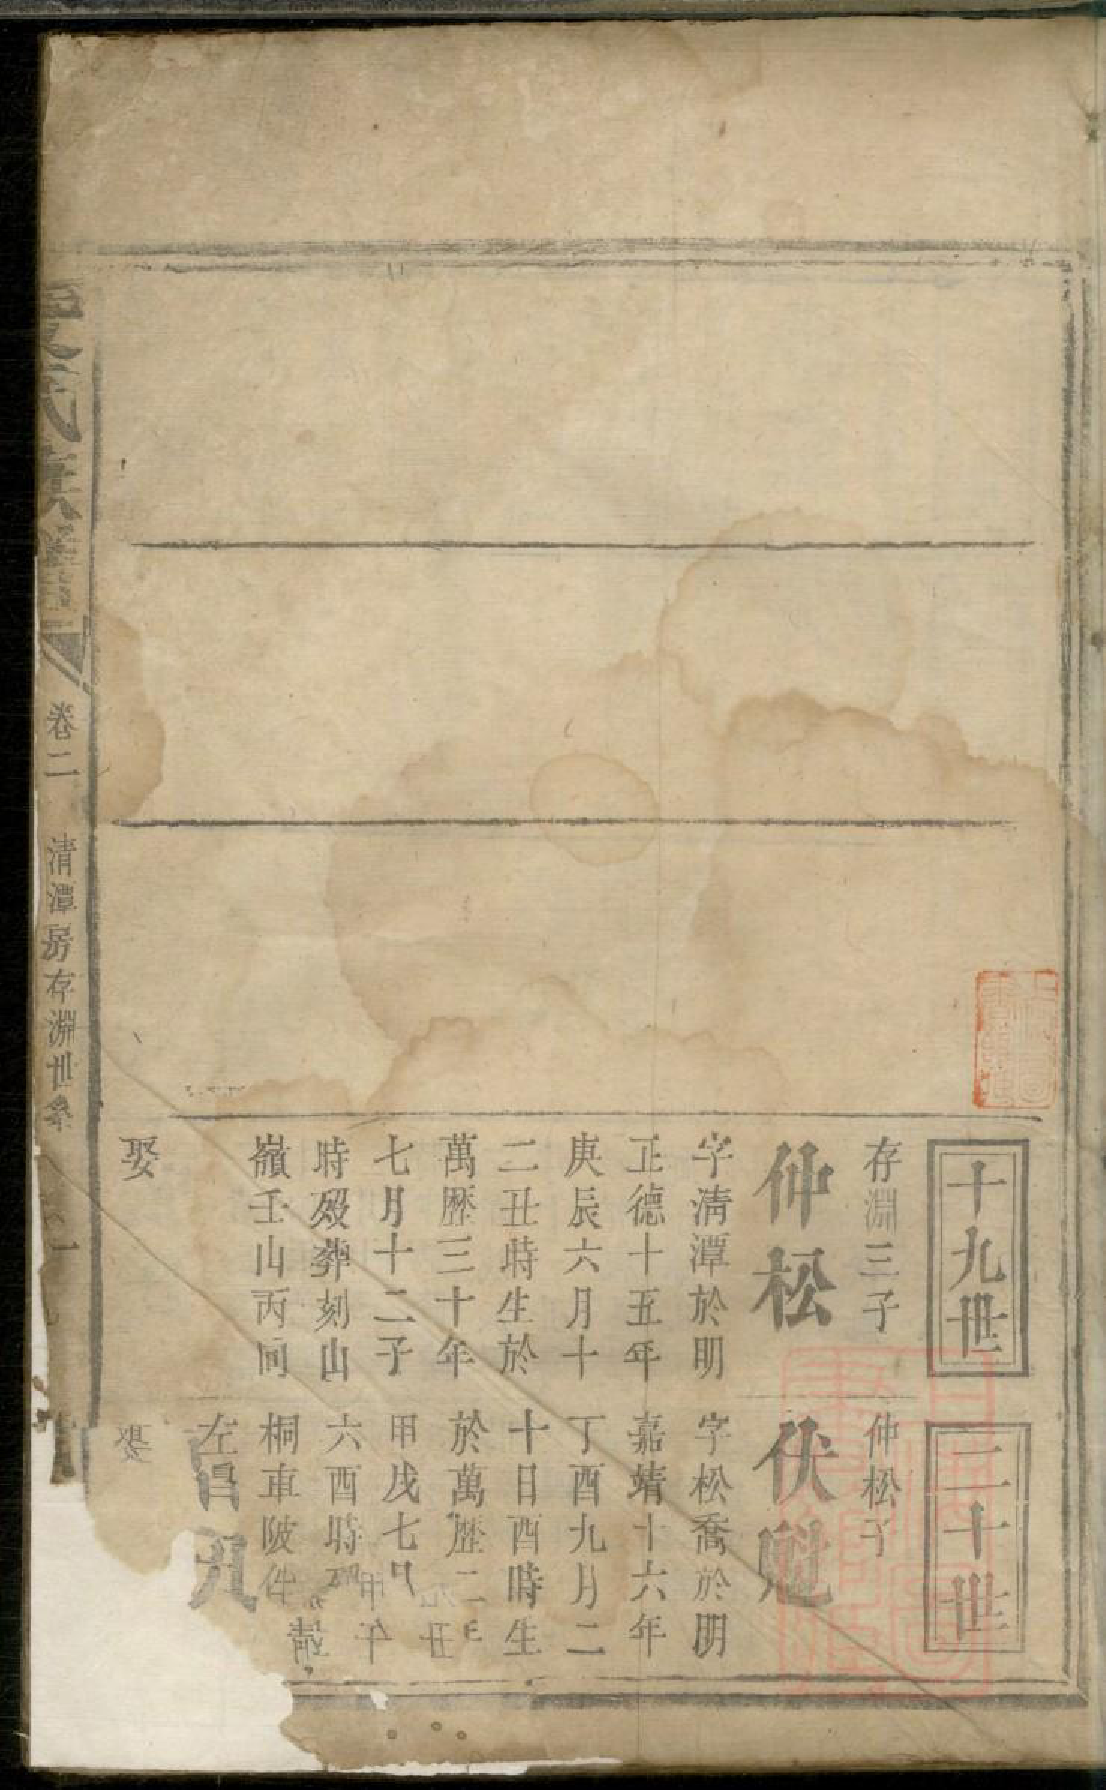 十九世
存淵三子
仲松
字清潭於明
正德十五年
庚辰六月十
二丑時生於
萬歷三十年
七月十二子
時歿葬刻山
嶺壬山丙向
娶
二十世
仲松子
伏魁
字松喬於明
嘉靖十六年
丁酉九月二
十日酉時生
於萬歷二年
甲戌七月
六酉時
桐車陂
左
氏族譜
卷二
清潭房存淵世系